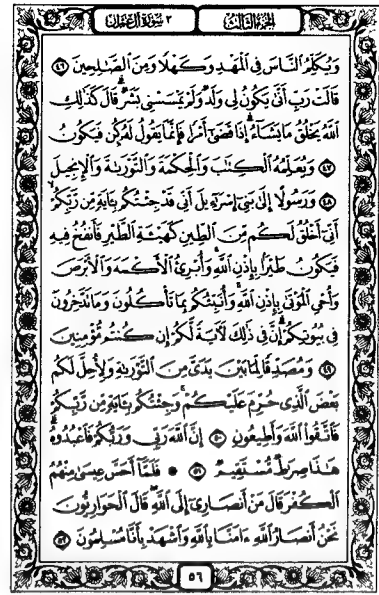 الجزء الثالث
٣ سورة آل عمران
وَيُكَلِّمُ النَّاسَ فِي الْمَهْدِ وَكَهْلًا وَمِنَ الصَّالِحِينَ ٤٦
قَالَتْ رَبِّ أَنَّىٰ يَكُونُ لِي وَلَدٌ وَلَمْ يَمْسَسْنِي بَشَرٌ قَالَ كَذَٰلِكِ
اللَّهُ يَخْلُقُ مَا يَشَاءُ إِذَا قَضَىٰ أَمْرًا فَإِنَّمَا يَقُولُ لَهُ كُنْ فَيَكُونُ
٤٧ وَيُعَلِّمُهُ الْكِتَٰبَ وَالْحِكْمَةَ وَالتَّوْرَىٰةَ وَالْإِنْجِيلَ
٤٨ وَرَسُولًا إِلَىٰ بَنِي إِسْرَٰٓءِيلَ أَنِّي قَدْ جِئْتُكُمْ بِآيَةٍ مِنْ رَبِّكُمْ
أَنِّي أَخْلُقُ لَكُمْ مِنَ الطِّينِ كَهَيْئَةِ الطَّيْرِ فَأَنْفُخُ فِيهِ
فَيَكُونُ طَيْرًا بِإِذْنِ اللَّهِ وَأُبْرِئُ الْأَكْمَهَ وَالْأَبْرَصَ
وَأُحْيِ الْمَوْتَىٰ بِإِذْنِ اللَّهِ وَأُنَبِّئُكُمْ بِمَا تَأْكُلُونَ وَمَا تَدَّخِرُونَ
فِي بُيُوتِكُمْ إِنَّ فِي ذَٰلِكَ لَآيَةً لَكُمْ إِنْ كُنْتُمْ مُؤْمِنِينَ
٤٩ وَمُصَدِّقًا لِمَا بَيْنَ يَدَيَّ مِنَ التَّوْرَىٰةِ وَلِأُحِلَّ لَكُمْ
بَعْضَ الَّذِي حُرِّمَ عَلَيْكُمْ وَجِئْتُكُمْ بِآيَةٍ مِنْ رَبِّكُمْ
فَاتَّقُوا اللَّهَ وَأَطِيعُونِ ٥٠ إِنَّ اللَّهَ رَبِّي وَرَبُّكُمْ فَاعْبُدُوهُ
هَٰذَا صِرَٰطٌ مُسْتَقِيمٌ ٥١ ۞ فَلَمَّا أَحَسَّ عِيسَىٰ مِنْهُمُ
الْكُفْرَ قَالَ مَنْ أَنْصَارِي إِلَى اللَّهِ قَالَ الْحَوَارِيُّونَ
نَحْنُ أَنْصَارُ اللَّهِ ءَامَنَّا بِاللَّهِ وَاشْهَدْ بِأَنَّا مُسْلِمُونَ ٥٢
٥٦